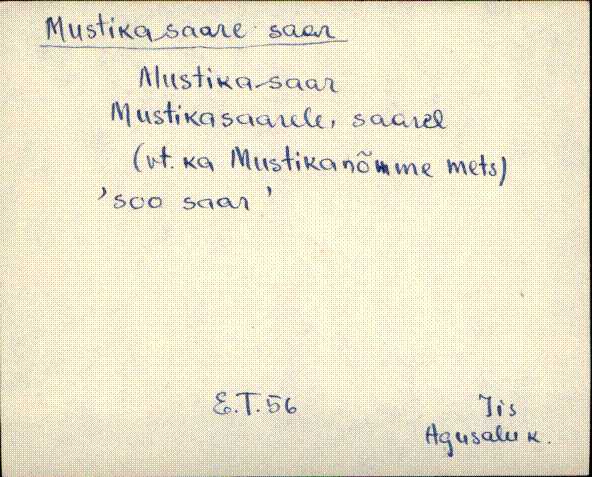 Mustikasaare saar
Mustika-saar
Mustikasaarele, saarel
(vt. ka Mustikanõmme mets)
'soo saar'
E.T.56
Iis
Agusalu k.